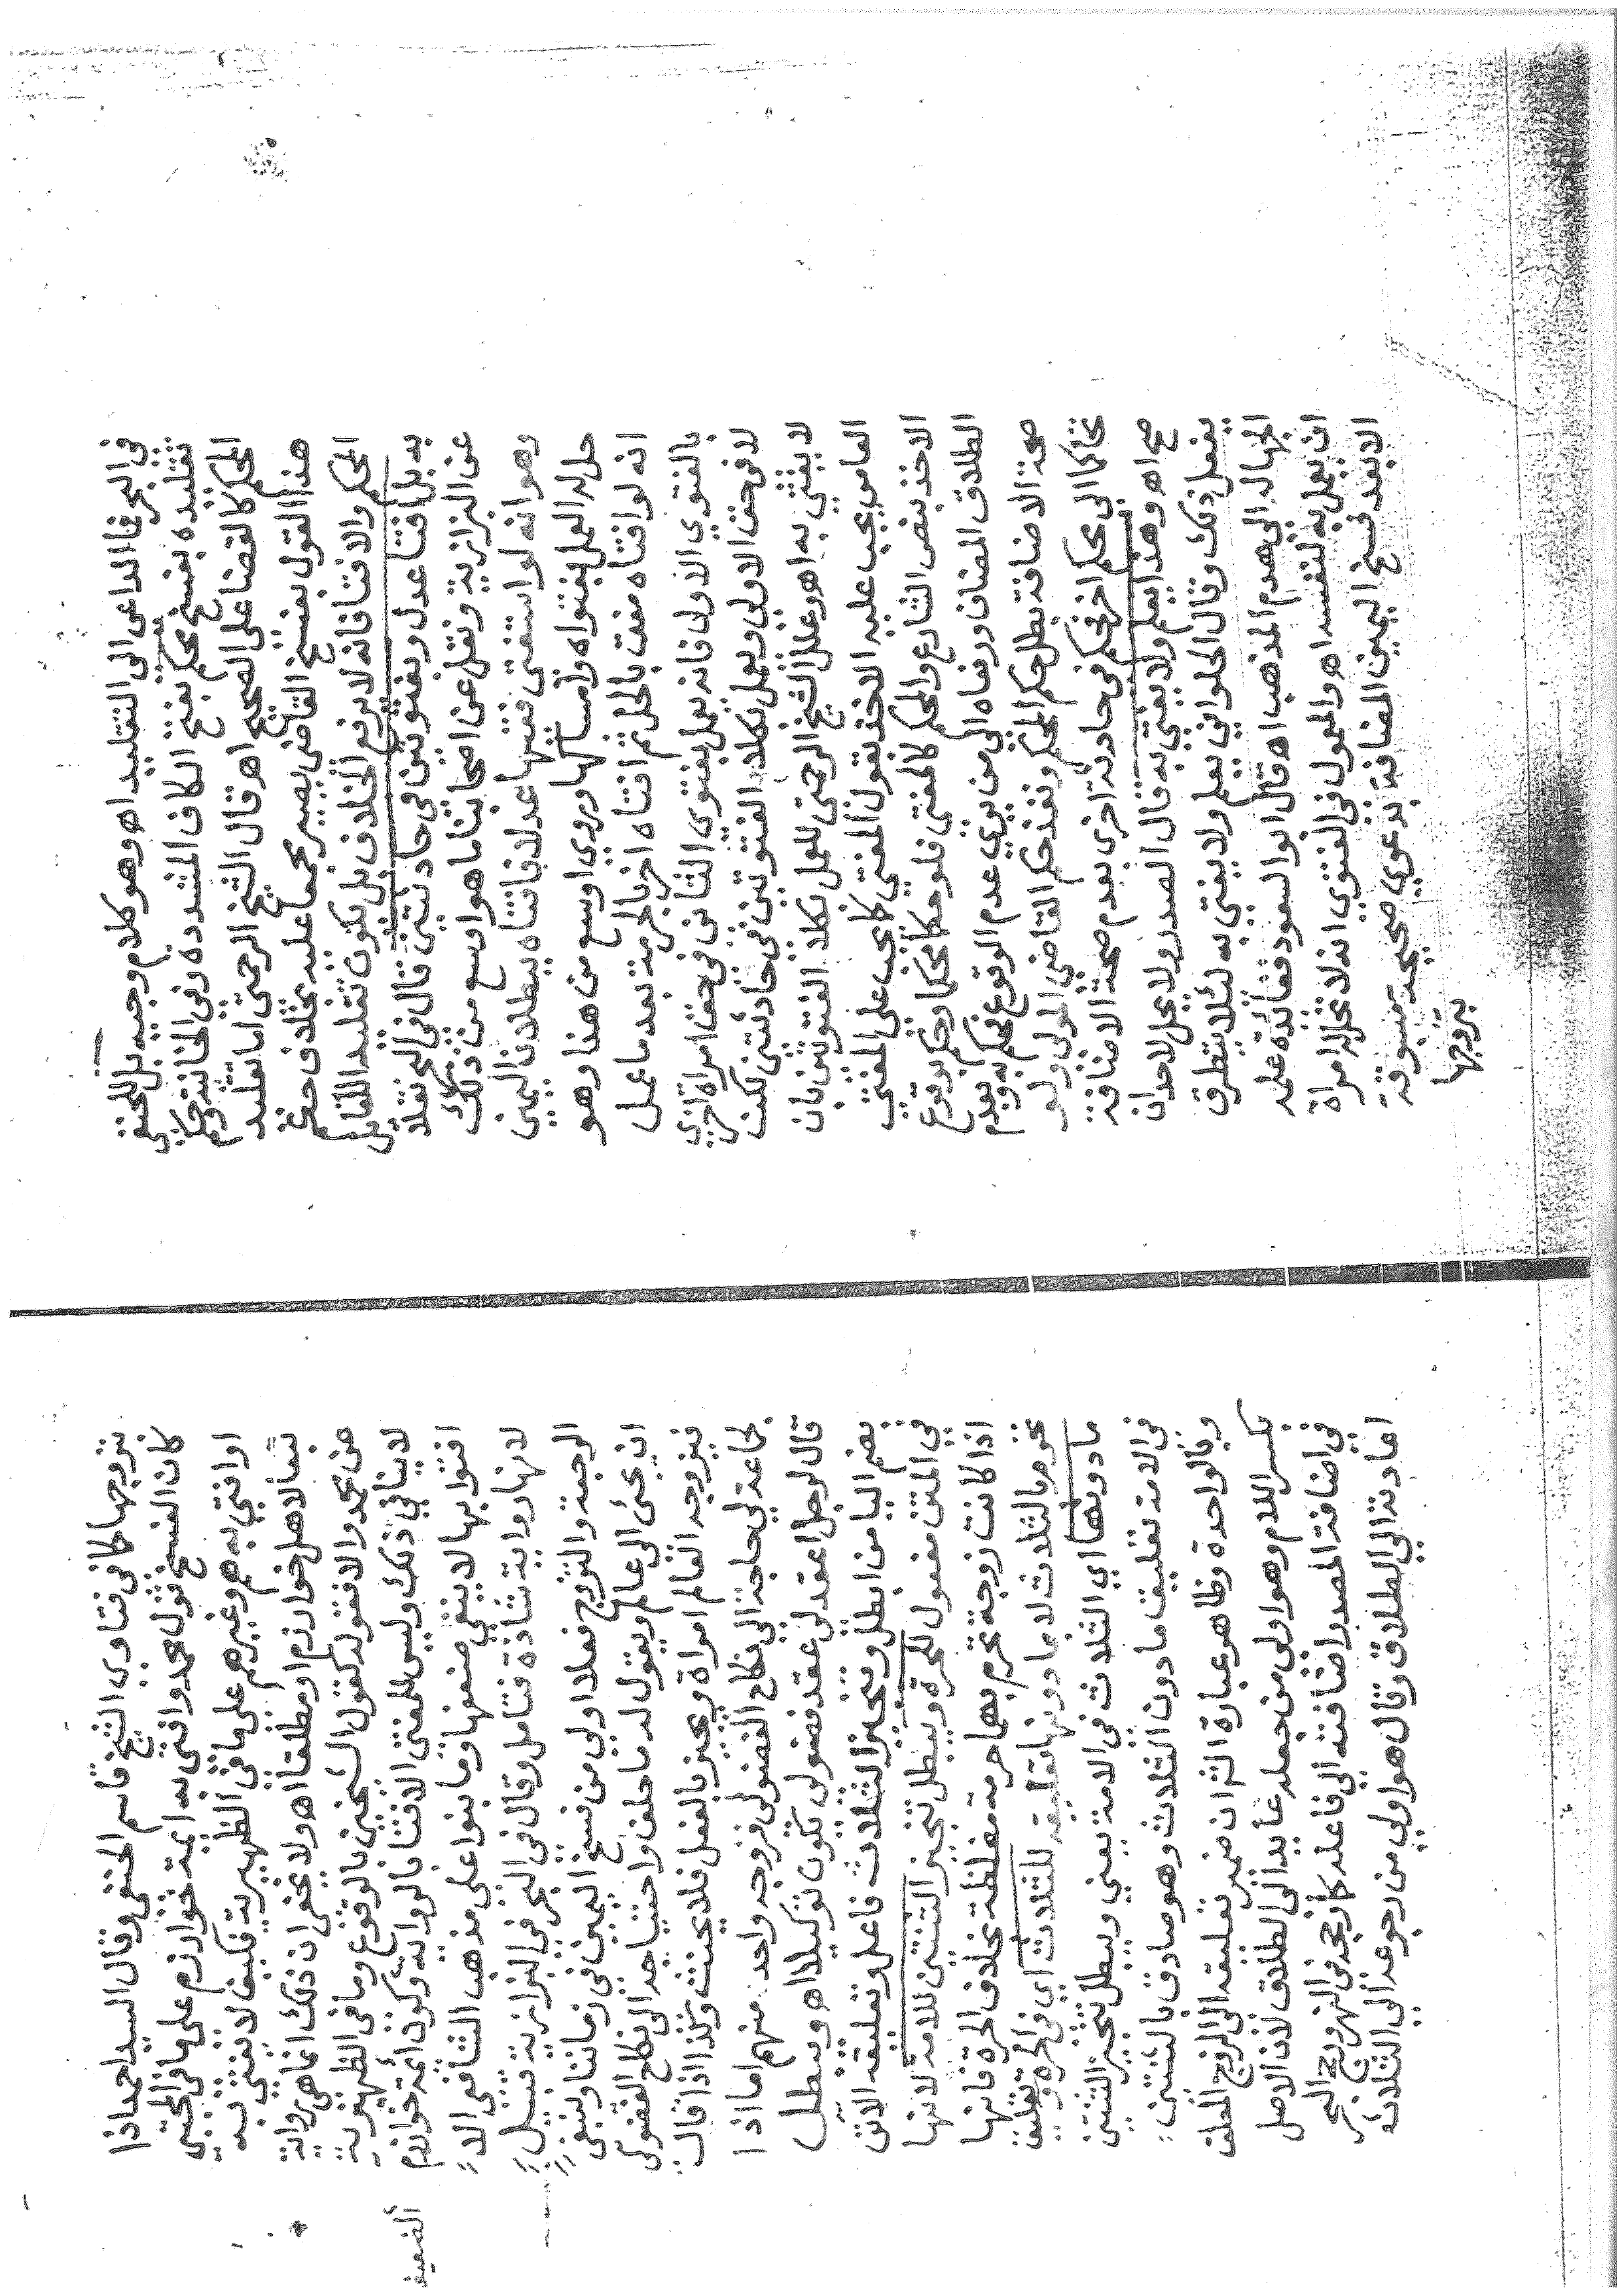 في البحر فما الداعي الى التقليد اه وهو كلام وجيه بل للحنفي
تقليده بفسخ محكم بفتح الكاف المشددة وفي الخانية حكم
المحكم كالقضا على الصحيح اه قال الشيخ الرحمتي اما بعليه
هذا القول بفسخ القاضي يصير مجمعا عليه بخلاف حكم
المحكم والافتا فانه لا يرفع الخلاف بل يكون تقليدا للقائل
به بل افتا عدل وبفتوتين في حادثتين قال في البحر نقلا
عن البزازية ونقل عن اصحابنا ما هو اوسع من ذلك
وهو انه لو استفتى فقيها عدلا فافتاه ببطلان اليمين
حل له العمل بفتواه وامساكها وروي اوسع من هذا وهو
انه لو افتاه مفت بالحل ثم افتاه اخر بالحرمة بعد ما عمل
بالفتوي الاولى فانه يعمل بفتوى الثاني في حق امراة اخرى
لا في حق الاولى ويعمل بكلا الفتوتين في حادثتين لكن
لا يفتي به اه وعلل الشيخ الرحمتي للعمل بكلا الفتوتين بان
العامي يجب عليه الاخذ بقول المفتي كما يجب على المفتي
الاخذ بنص الشارع والمحكم كالمفتي فلو حكما محكما وحكم بوقوع
الطلاق المضاف ورفعاه الى من يرى عدم الوقوع فحكم به وبعدم
صحة الاضافة بطل حكم المحكم ونفذ حكم القاضي المولى ولو
تحاكما الى محكم اخر فحكم في حادثة اخرى بعدم صحة الاضافة
صح اه وهذا يعلم ولا يفتي به قال الصدر ولا يحل لاحد ان
يفعل ذلك وقال الحلواني يعلم ولا يفتي به لئلا يتطرق
الجهال الى هدم المذهب اه قال ابو السعود ففائدة علمه
ان يعمل به لنفسه اه والمعول في الفتوي انه لا تحل له امراة
الا بعد فسخ اليمين المضافة بدعوي صحيحة مسبوقة
بتزوجها
بتزوجها كما في فتاوى الشيخ قاسم الحنفي وقال السيد احمد اذا
كان الفسخ قول محمد وافتى به ايمة خوارزم على ما في المجتبى
او افتي به هم وغيرهم على ما في الظهيرية فكيف لا يفتي به
نبا لاهل خوارزم او مطلقا اه ولا يخفى ان ذلك انما هي رواية
عن محمد والا فقوله كقول الشيخين بالوقوع وما في الظهيرية
لا ينافي ذلك وليس للمفتي الافتا بالرواية وكون ائمة خوارزم
افتوا بها لا ينفي ضعفها وما بنوا على مذهب الشافعي الا
لانها رواية شاذة فتامل وقال في البحر في البزازية قبيل
الرجعة والتزوج فعلا اولى من فسخ اليمين في زماننا وينبغي
ان يجئ الى عالم ويقول له ما حلف واحتياجه الى نكاح الفضولى
فيزوجه العالم امراة ويجيز بالفعل فلا يحنث وكذا اذا قال
لجماعة لي حاجة الى نكاح الفضولى فزوجه واحد منهم اما اذا
قال لرجل اعقد لي عقد فضولى يكون توكيلا اه ويبطل
بضم اليا من ابطل وتنجيز الثلاث فاعل وتعليقه الاتي
في المتن مفعول للحرة ويبطل تنجيز الثنتين للامة لانها
اذا كانت زوجة تحرم بهما حرمة مغلظة بخلاف الحرة فانها
تحرم بالثلاث لا بما دونها تعليقه للثلاث اي في الحرة وتعليق
ما دونها اي الثلاث في الامة يعني ويبطل تنجيز الثنتين
في الامة تعليق ما دون الثلاث وهو صادق بالثنتين
وبالواحدة وظاهر عبارة الشر ان ضمير تعليقه الى الزوج المعلق
بكسر اللام وهو اولى من جعله عايدا الى الطلاق لان الاصل
في اضافة المصدر اضافته الى فاعله كما رجحه في النهر ورجح البحر
اعادته الى الطلاق وقال هو اولي من رجوعه الى الثلاثة